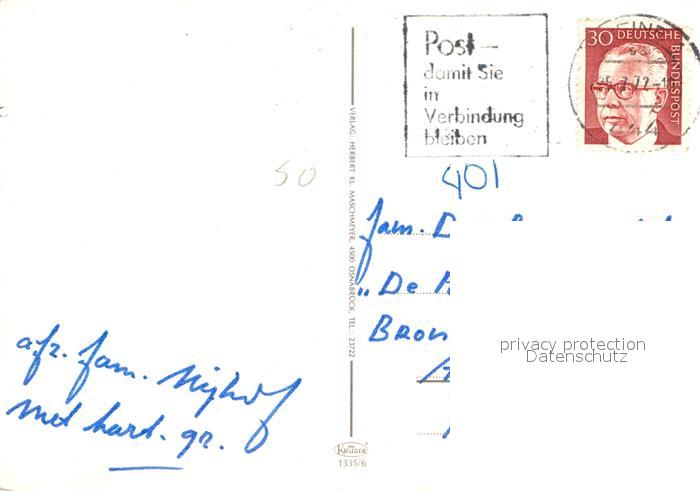 Post –
damit Sie
in
Verbindung
bleiben
30 DEUTSCHE
BUNDESPOST
50
401
VERLAG: HERBERT KL. MASCHMEYER, 4500 OSNABRÜCK, TEL.: 23722
fam. D
„De
Bron
privacy protection
Datenschutz
afz. fam. Nijhof
met hart. gr.
KRÜGER
1335/6